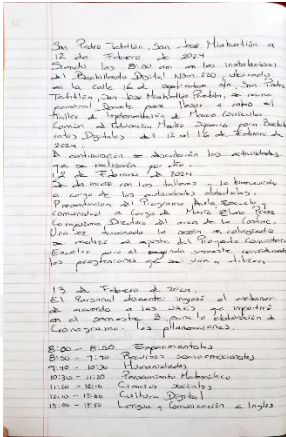 San Pedro Tetitlán, San José Miahuatlán a
12 de Febrero de 2024
Siendo las 8:00 am en las instalaciones
del Bachillerato Digital Núm. 120, ubicado
en la calle 16 de septiembre s/n San Pedro
Tetitlán, San José Miahuatlán Puebla, se reúne
personal Docente para llevar a cabo el
taller de Implementación del Marco Curricular
Común de Educación Media Superior para Bachille
ratos Digitales del 12 al 16 de Febrero de
2024.
A continuación se describirán las actividades
que se realizarán por día
12 de Febrero de 2024
Se da inicio con los talleres y la bienvenida
a cargo de las autoridades
Presentación del Programa Aula Escuela y
comunidad a Cargo de María Elena Pérez
Directora del área de la
Una vez terminada la sesión en colegiado
se realizó el ajuste del Proyecto
Escolar para el segundo semestre considerando
las progresiones que se van a utilizar.
13 de Febrero de 2024.
El Personal docente ingresó al webinar
de acuerdo a las UACS que impartirá
en el semestre B para la elaboración de
Cronograma. las planeaciones.
8:00 - 8:50 Experimentales
8:50 - 9:40 Recursos socioemocionales
9:40 - 10:30 Humanidades
10:30 - 11:20 Pensamiento Matemático
11:20 - 12:10 Ciencias Sociales
12:10 - 13:00 Cultura Digital
13:00 - 13:50 Lengua y Comunicación e Ingles